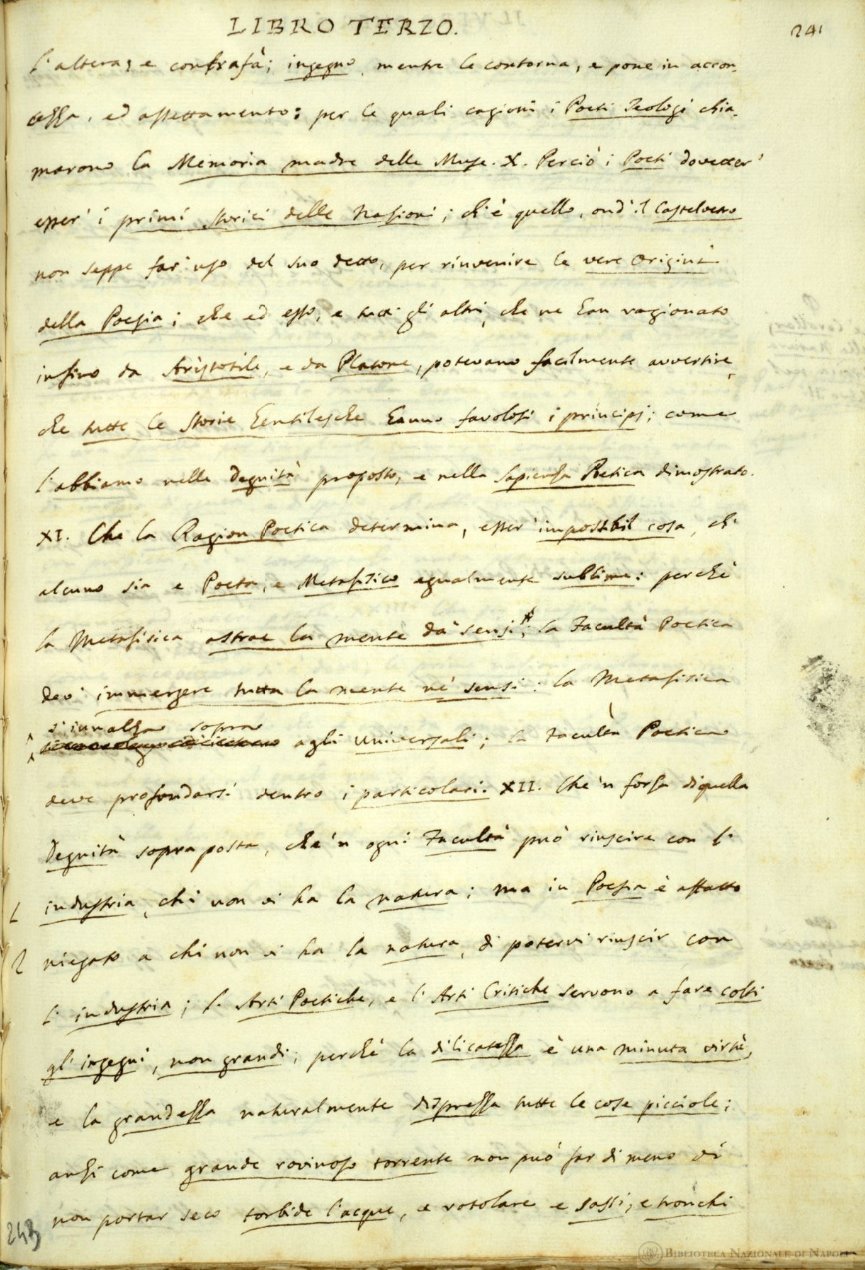 LIBRO TERZO.
241
l'altera, e contrafà; ingegno, mentre le contorna, e pone in accon-
cezza, ed assettamento: per le quali cagioni i Poeti Teologi chia-
marono la Memoria madre delle Muse. X. Perciò i Poeti dovetter'
esser' i primi Storici delle Nazioni; ch'è quello, ond'il Castelvetro
non seppe far uso del suo detto, per rinvenire le vere origini
della Poesia; che ed esso, e tutti gli altri, che ne han ragionato
infino da Aristotile, e da Platone, potevano facilmente avvertire,
che tutte le Storie Gentilesche hanno favolosi i principj; come
l'abbiamo nelle Degnità proposto, e nella Sapienza Poetica dimostrato.
XI. Che la Ragion Poetica determina, esser' impossibil cosa, ch'
alcuno sia e Poeta, e Metafisico egualmente sublime: perchè
la Metafisica astrae la mente da' sensi; la Facultà Poetica
dev' immergere tutta la mente ne' sensi: la Metafisica
s'innalza sopra
agli universali; la Facultà Poetica
deve profondarsi dentro i particolari. XII. Che 'n forza di quella
Degnità sopra posta, che 'n ogni Facultà può riuscire con l'
industria, chi non vi ha la natura; ma in Poesia è affatto
niegato a chi non vi ha la natura, di potervi riuscir con
l' industria; l' Arti Poetiche, e l' Arti Critiche servono a fare colti
gl' ingegni, non grandi; perchè la dilicatezza è una minuta virtù,
e la grandezza naturalmente disprezza tutte le cose picciole;
anzi come grande rovinoso torrente non può far di meno di
non portar seco torbide l'acque, e rotolare e sassi, e tronchi
243
BIBLIOTECA NAZIONALE DI NAPOLI